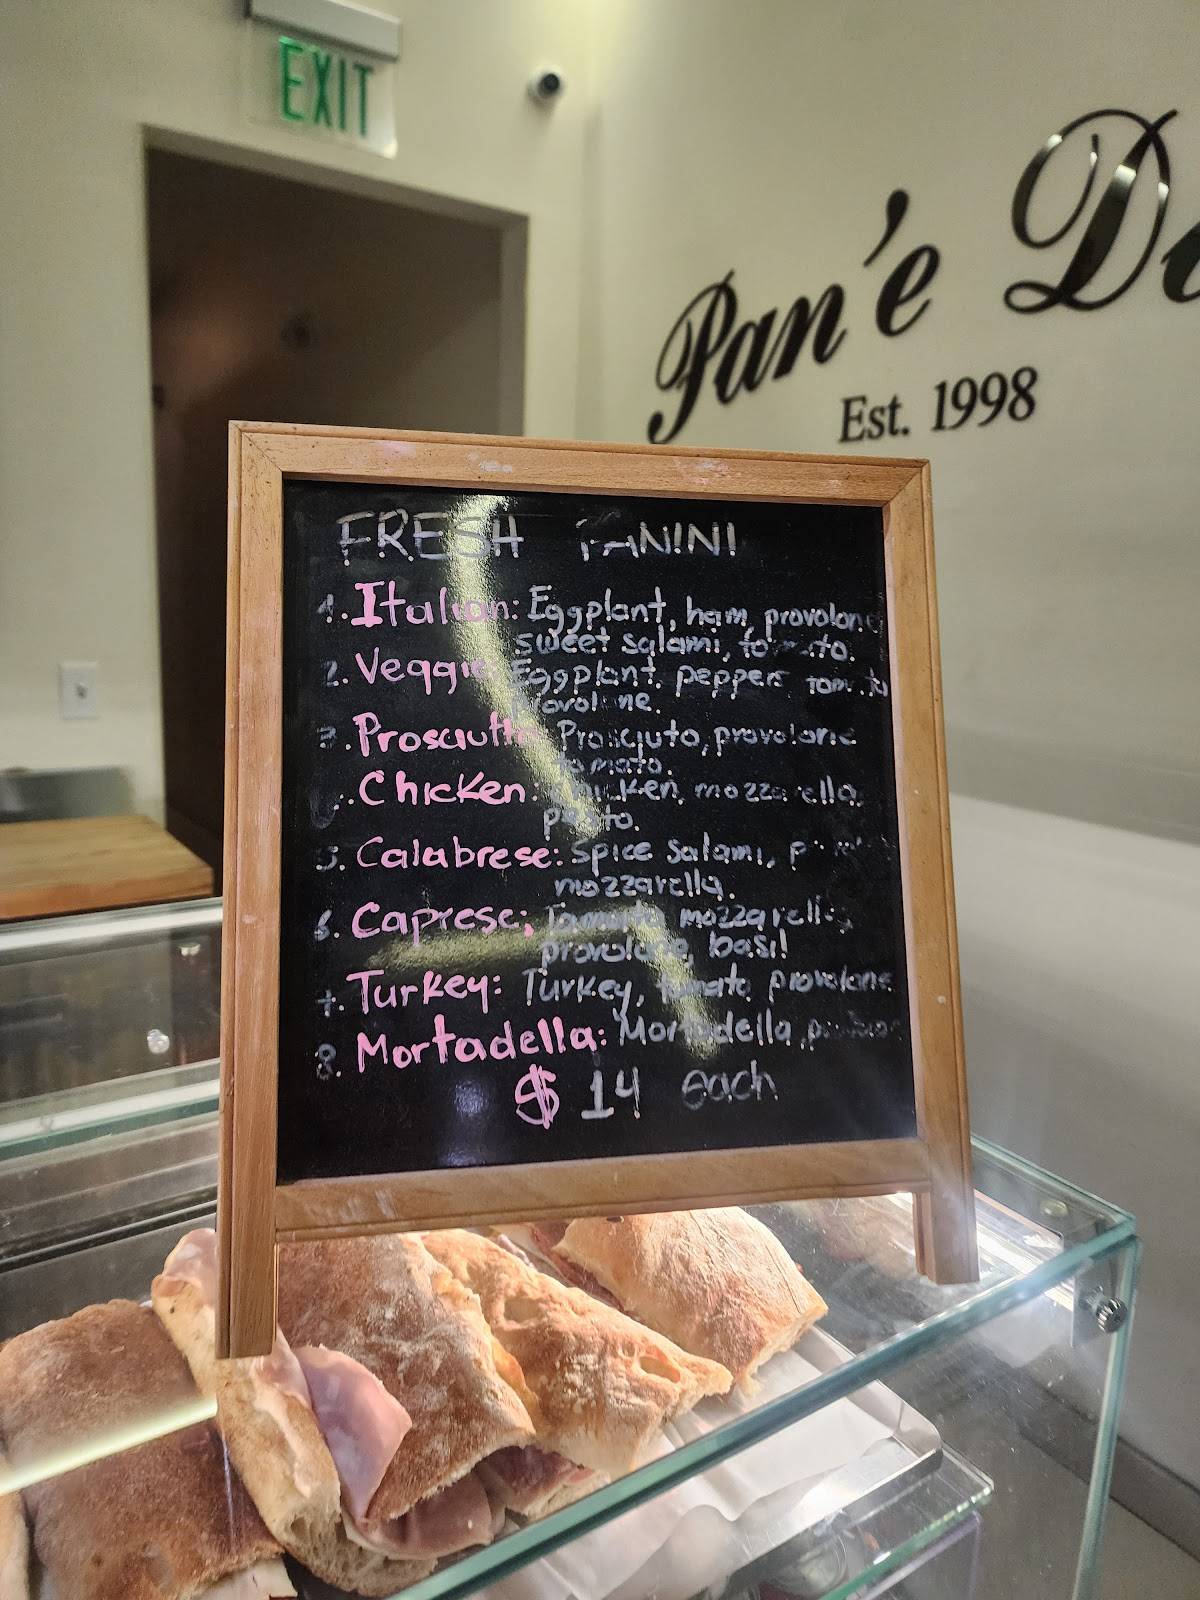 EXIT
Pan'e
Est. 1998
FRESH PANINI
1. Italian: Eggplant, ham, provolone
sweet salami, tomato.
2. Veggie: Eggplant, peppers tomato
provolone.
3. Prosciutto Prosciuto, provolone
tomato.
. Chicken: Chicken, mozzarella,
pesto.
5. Calabrese: Spice Salami,
mozzarella.
6. Caprese; Tomato mozzarella,
provolone, basil
7. Turkey: Turkey, tomato, provolone
8. Mortadella: Mortadella,
$ 14 each